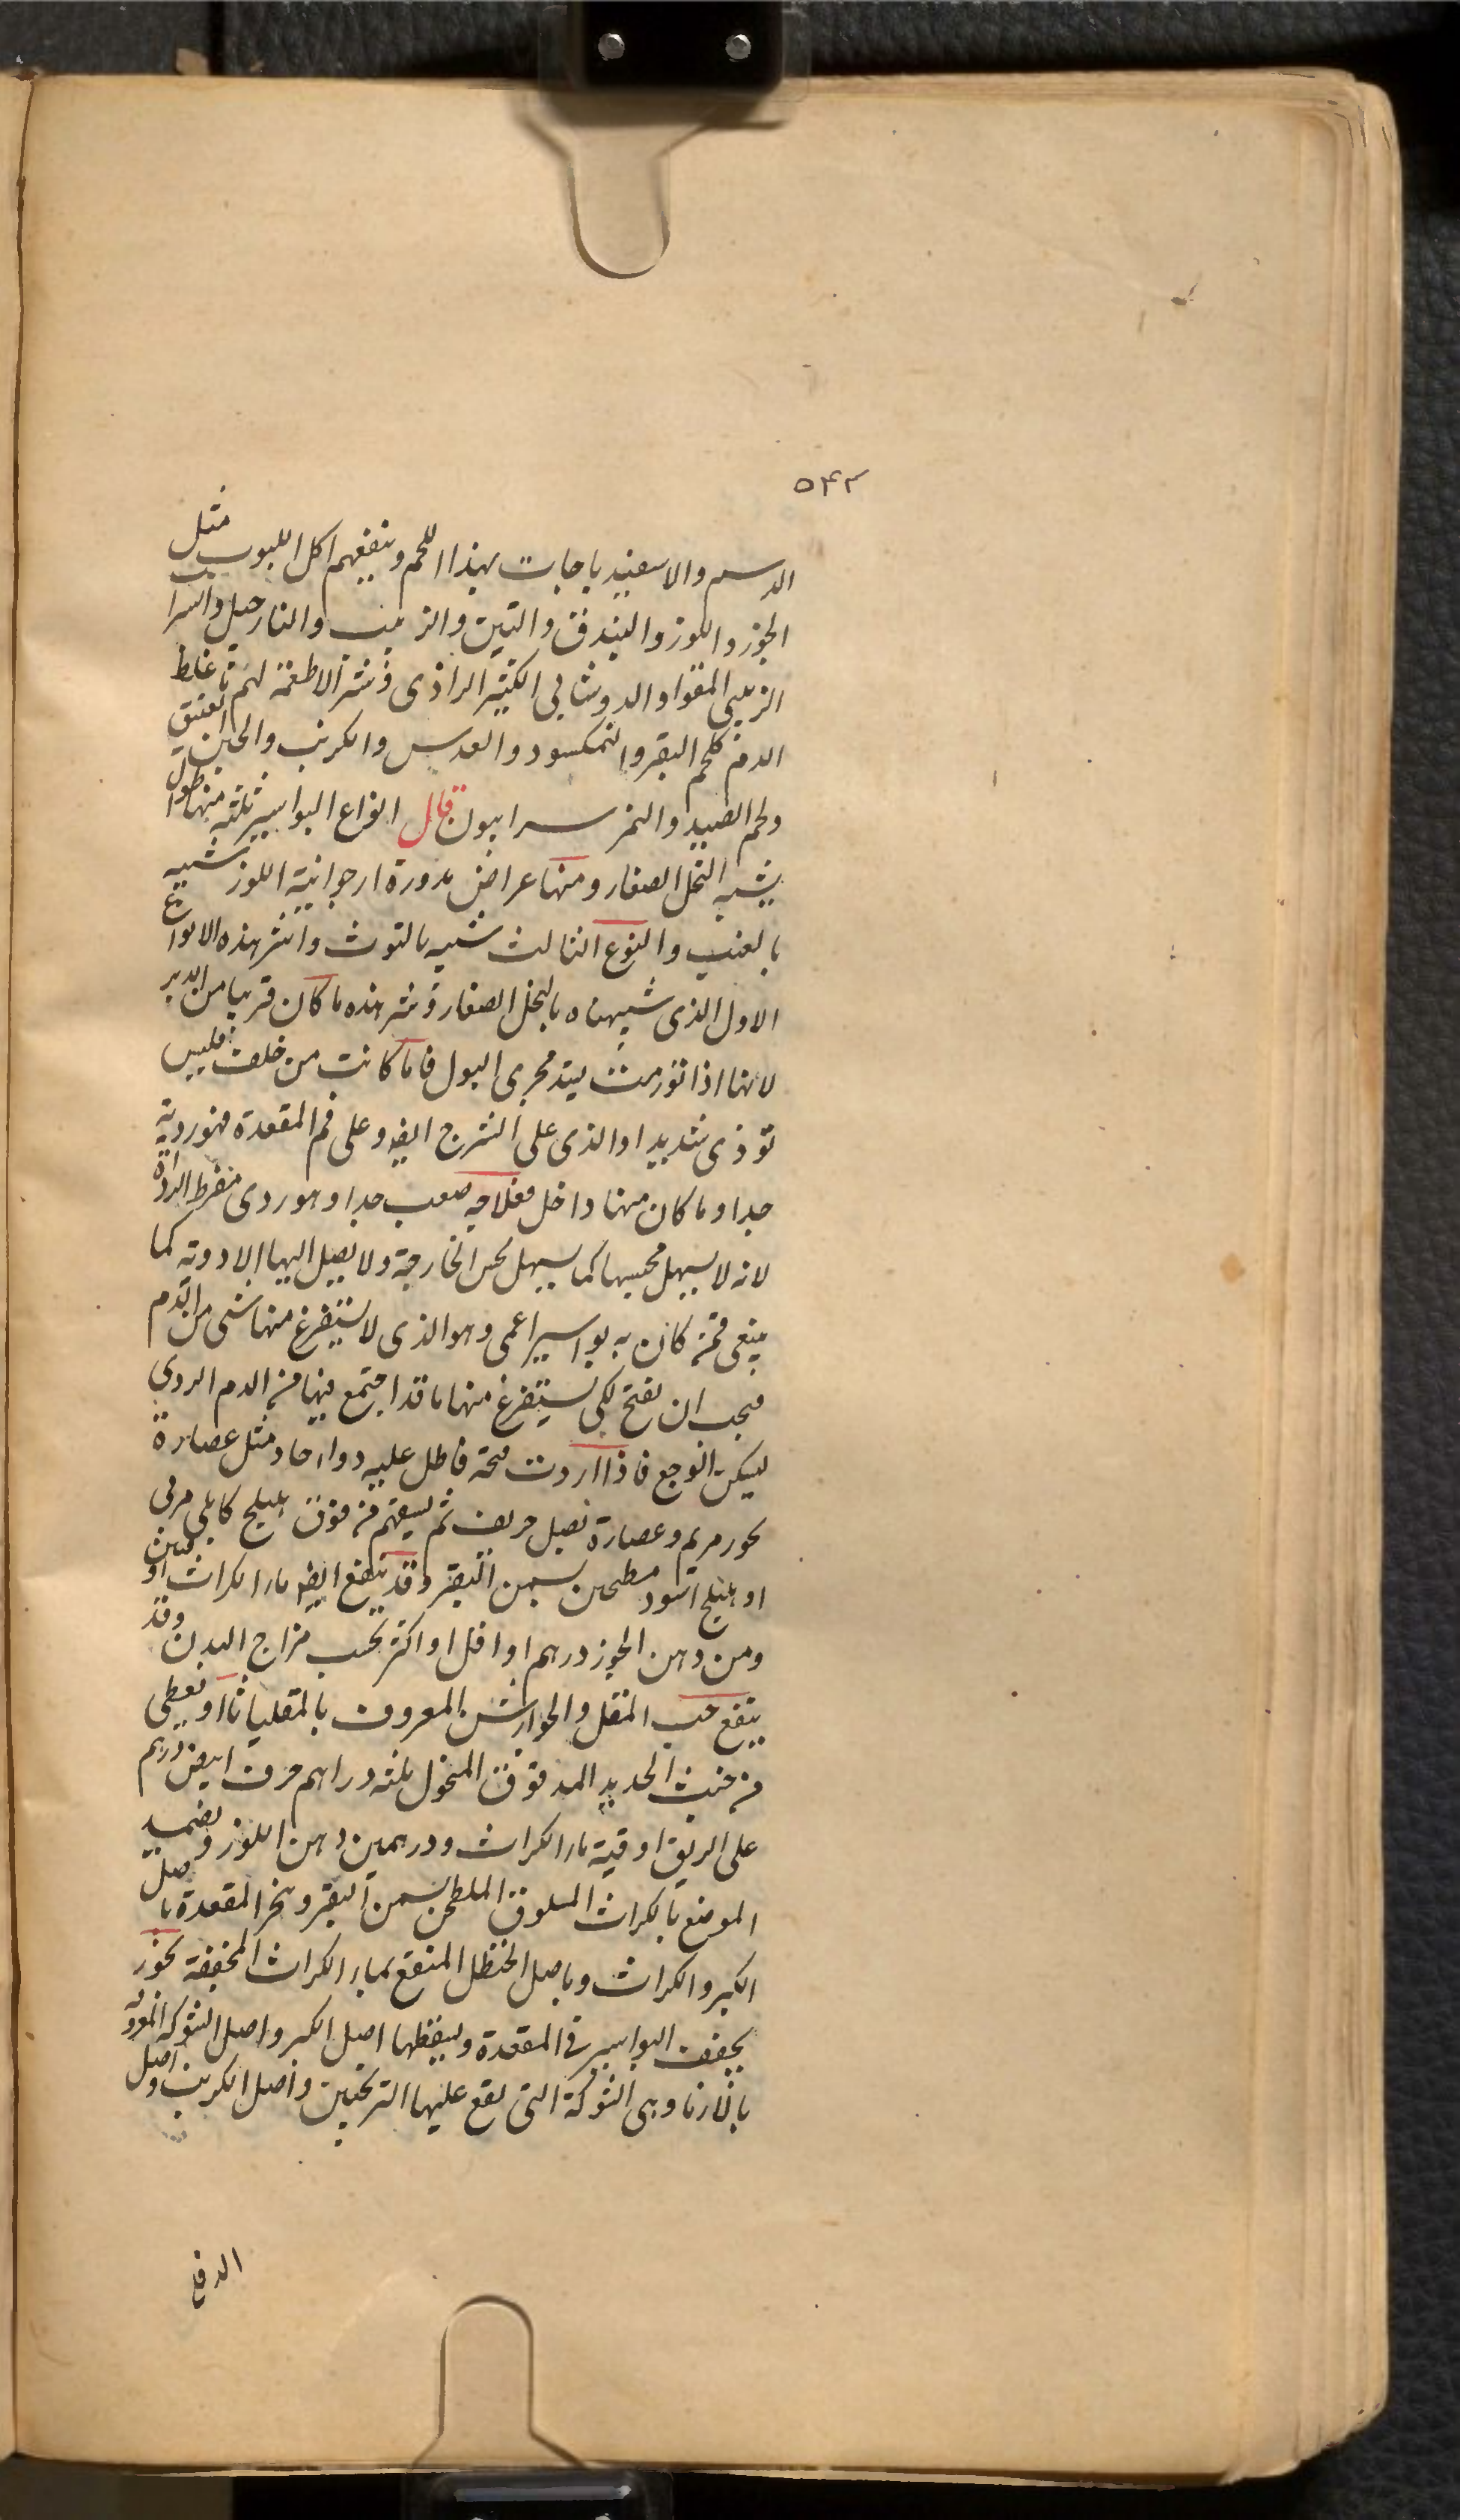 ٥۴٢
الدسم والاسفيدباجات بهذا اللحم وينفعهم اكل اللبوب مثل
الجوز واللوز والبندق والتين والزبيب والنارجيل واشرا
الزبيبى المقوا والدوشابى الكثير الراذى وشر الاطعمة لهم ما غلظ
الدم كلحم البقر والنمكسود والعدس والكرنب والجبن العتيق
ولحم الصيد والتمر سرابيون قال انواع البواسير ثلثه منها طوال
يشبه النخل الصغار ومنها عراض مدورة ارجوانية اللوز شبيه
بالعنب والنوع الثالث شبيه بالتوث واشر هذه الانواع
الاول الذى شبهناه بالنخل الصغار وشر هذه ما كان قريبا من الدبر
لانها اذا تورمت يتد مجرى البول فاما كانت من خلف فليس
توذى شديدا والذى على الشرج ايضو على فم المقعدة فهو ردية
جدا وما كان منها داخل فعلاجه صعب جدا وهو ردى مفرط الرداة
لانه لا يسهل محسها كما يسهل لحس الخارجة ولا يصل اليها الادوته كما
ينبغى فمن كان به بواسير اعمى وهو الذى لا يستفرغ منها شى من الدم
فيجب ان يفتح لكى يستفرغ منها ما قد اجتمع فيها من الدم الردى
ليسكن الوجع فاذا اردت فتحة فاطل عليه دواء حاد مثل عصارة
بخور مريم وعصارة بصل حريف ثم يسقيهم من فوق هليلج كابلى مربى
او هليلج اسود مطحن بسمن البقر وقد ينفع ايضو ماء الكراث او
ومن دهن الجوز درهم او اقل او اكثر بحسب مزاج البدن وقد
ينفع حب المقل والجوارشن المعروف بالمقلياثا او يعطى
من خبث الحديد المدقوق المنخول ثلثه دراهم حرف ابيض درهم
على الريق اوقية ماء الكراث ودرهمين دهن اللوز ويضمد
الموضع بالكراث المسلوق الملطحن بسمن البقر وبخر المقعدة باصل
الكبر والكراث وباصل الحنظل المنقع بماء الكراث المجففة بخور
يجفف البواسير فى المقعدة ويسقطها اصل الكبر واصل الشوكه المعروفه
بالارنا وهى الشوكة التى يقع عليها الترنجبين واصل الكرنب واصل
الدفلى